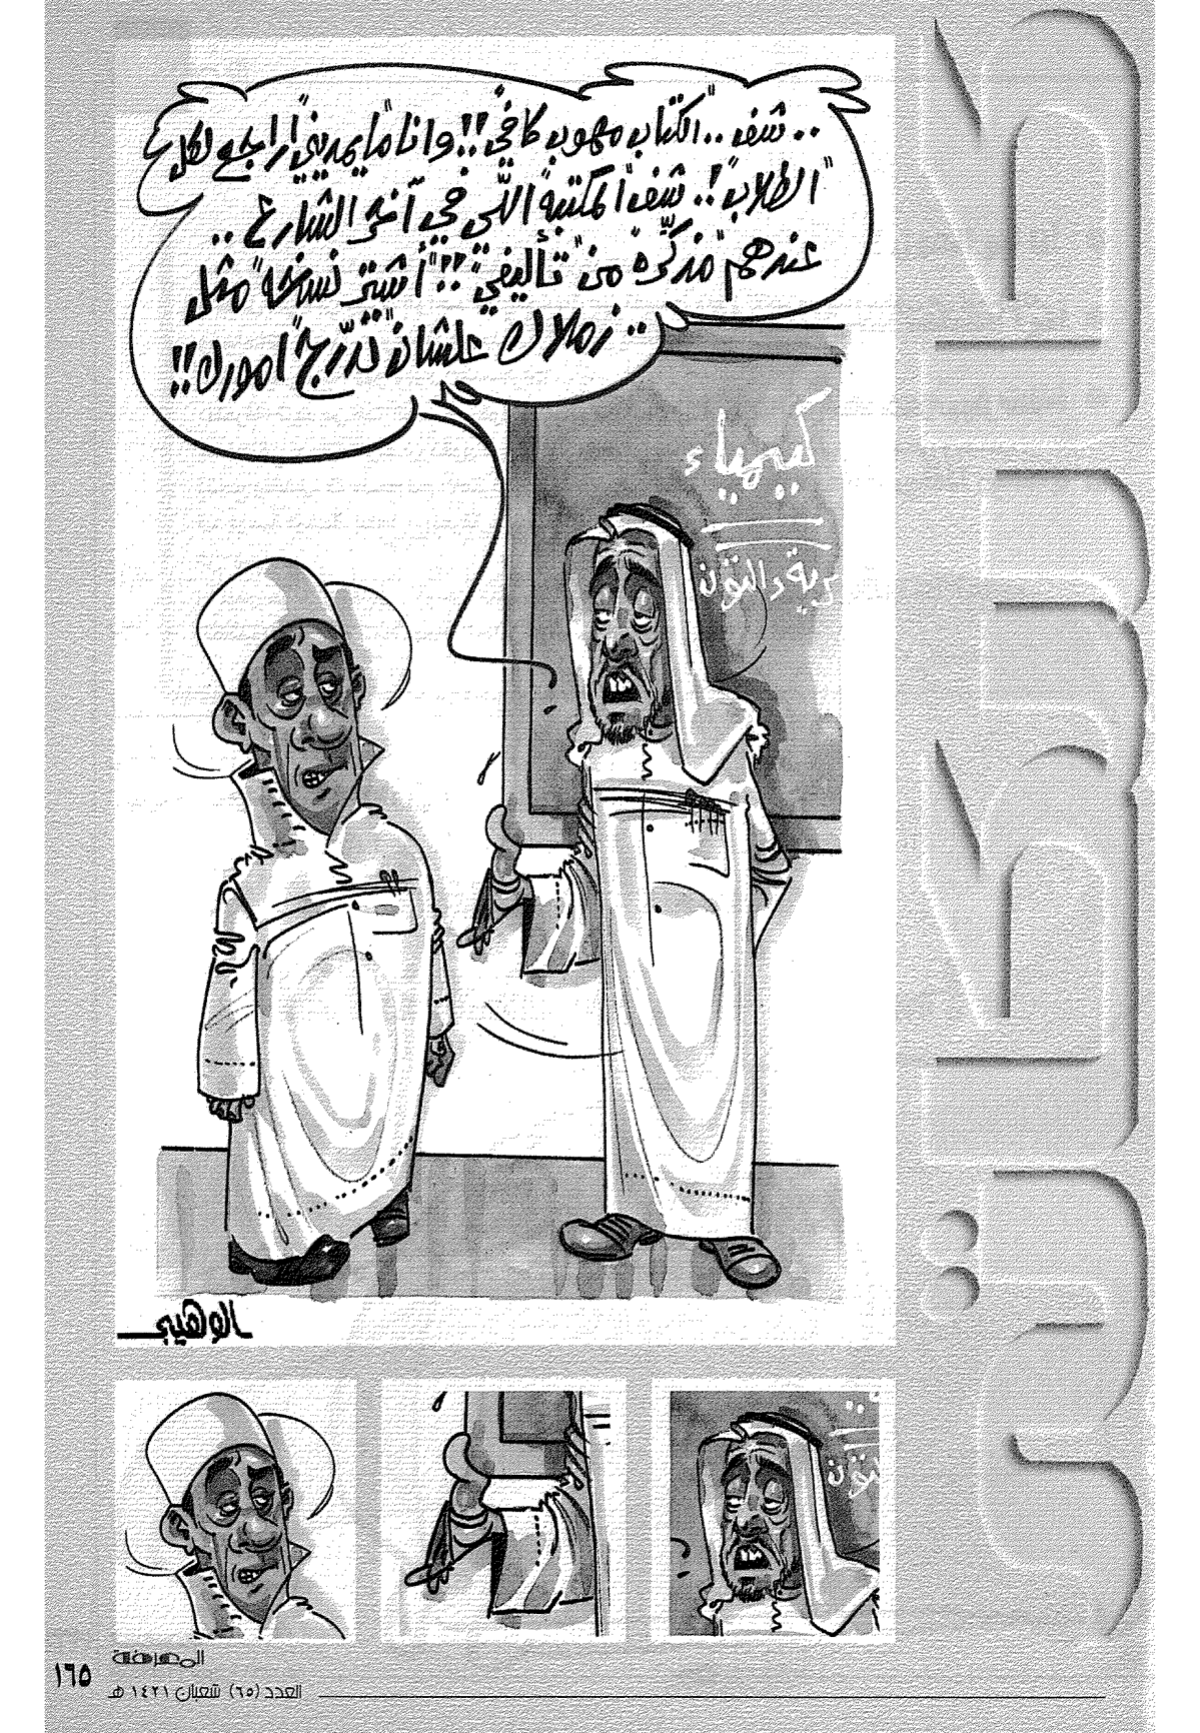 .. شف .. الكتاب مهوب كافي !! وانا "ما يمديني" أراجع لكل
"الطلاب" !.. شف "المكتبة" اللّي في آخر الشارع ..
عندهم "مذكّرة" من "تأليفي" !! "أشتر نسخة" مثل
.. زملاك علشان "تدرّج" أمورك !!
كيمياء
رية والتوّن
الوهيبي
توّن
كاريكاتير
المعرفة
١٦٥
العدد (٦٥) شعبان ١٤٢١ هـ